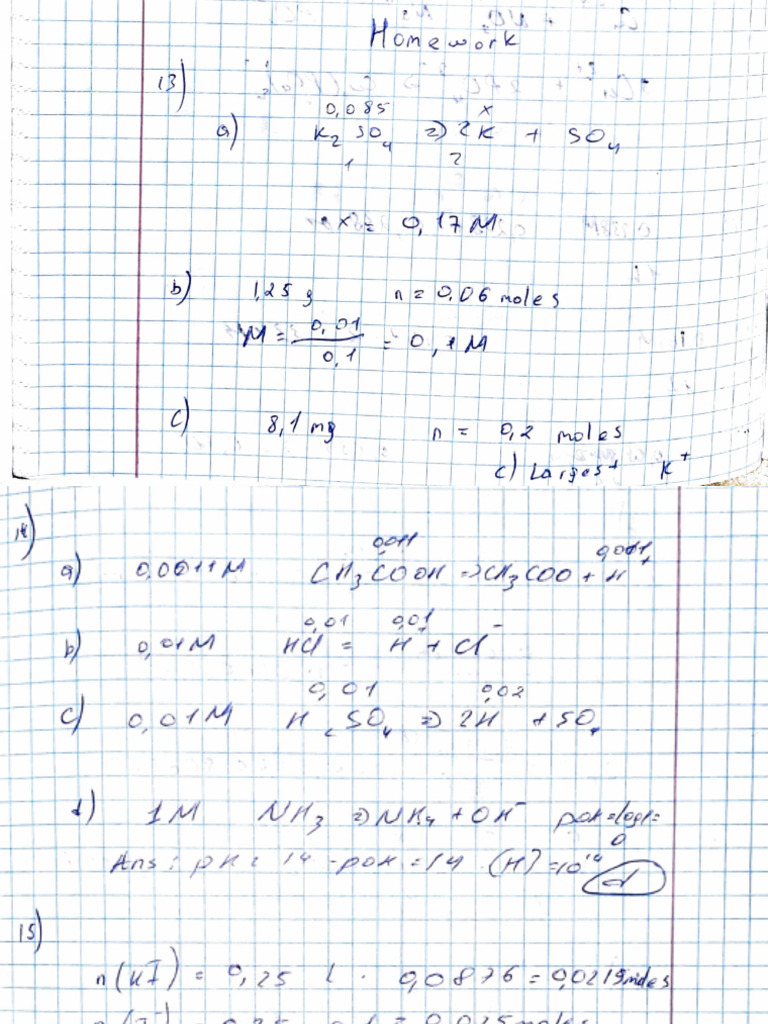 Homework
13)
0,085 x
a) K2 SO4 => 2K + SO4
1 2
x = 0,17 M
b) 1,25 g n = 0,06 moles
M = 0,01 / 0,1 = 0,1 M
c) 8,1 mg n = 0,2 moles
c) Largest K+
14)
0,0011 0,0011
a) 0,0011 M CH3COOH => CH3COO + H+
0,01 0,01
b) 0,01 M HCl = H+ + Cl-
0,01 0,02
c) 0,01 M H2SO4 => 2H + SO4
d) 1M NH3 => NH4 + OH- pOH = log1 =
0
Ans: pH = 14 - pOH = 14 (H) = 10^14 d
15)
n(KI) = 0,25 l . 0,0876 = 0,0219 moles